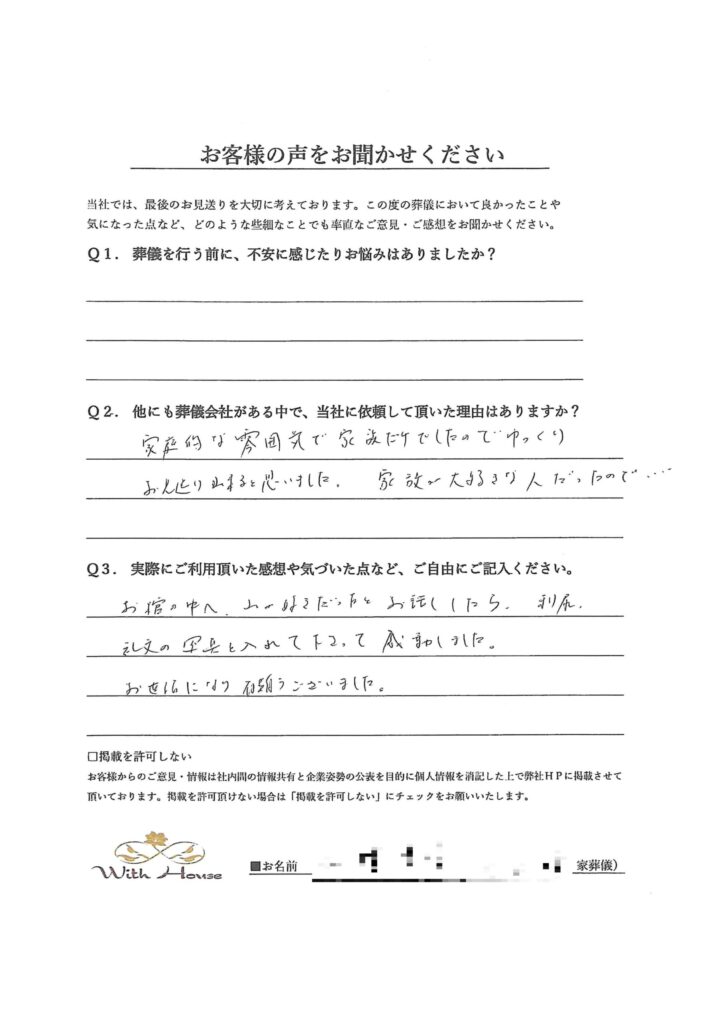 お客様の声をお聞かせください
当社では、最後のお見送りを大切に考えております。この度の葬儀において良かったことや
気になった点など、どのような些細なことでも率直なご意見・ご感想をお聞かせください。
Q1. 葬儀を行う前に、不安に感じたりお悩みはありましたか？
Q2. 他にも葬儀会社がある中で、当社に依頼して頂いた理由はありますか？
家庭的な雰囲気で家族だけでしたのでゆっくり
お見送り出来ると思いました。 家族が大好きな人だったので……
Q3. 実際にご利用頂いた感想や気づいた点など、ご自由にご記入ください。
お棺の中へ、山が好きだったとお話ししたら、利尻、
礼文の写真を入れて下さって感動しました。
お世話になり有難うございました。
□掲載を許可しない
お客様からのご意見・情報は社内間の情報共有と企業姿勢の公表を目的に個人情報を消記した上で弊社HPに掲載させて
頂いております。掲載を許可頂けない場合は「掲載を許可しない」にチェックをお願いいたします。
With House
■お名前
家葬儀）